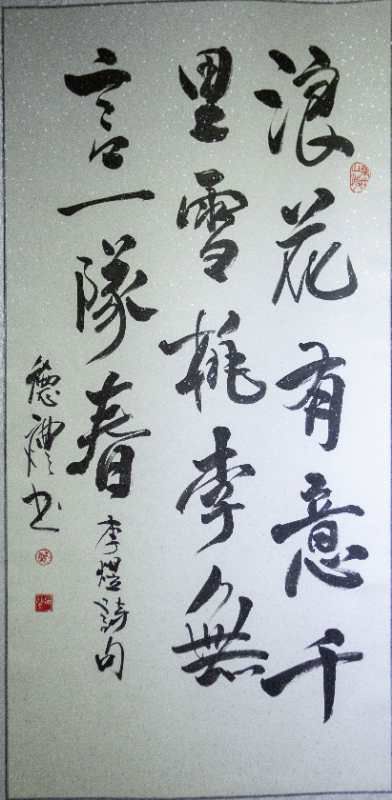 浪花有意千
里雪桃李無
言一隊春
李煜詩句
德禮书